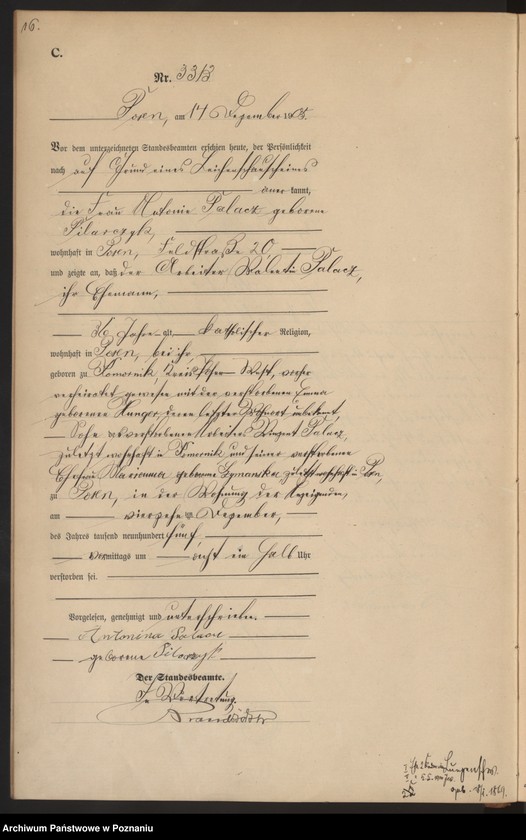 16.
C.
Nr. 3313
Posen, am 14 Dezember 1905.
Vor dem unterzeichneten Standesbeamten erschien heute, der Persönlichkeit
nach auf Grund eines Leichenschauscheines
anerkannt,
die Frau Antonie Palacz geborene
Pilarczyk,
wohnhaft in Posen, Feldstraße 20
und zeigte an, daß der Arbeiter Valentin Palacz,
ihr Ehemann,
36 Jahre alt, katholischer Religion,
wohnhaft in Posen, bei ihr,
geboren zu Komornik Kreis Posen West, vorher
verheiratet gewesen mit der verstorbenen Emma
geborenen deren letzter Wohnort unbekannt,
Sohn des verstorbenen Arbeiters Vinzent Palacz,
zuletzt wohnhaft in Komornik und seiner verstorbenen
Ehefrau Marianna geborene Szymanska, zuletzt wohnhaft in Posen,
zu Posen, in der Wohnung der Anzeigenden,
am vierzehnten Dezember,
des Jahres tausend neunhundert fünf,
Vormittags um acht ein halb Uhr
verstorben sei.
Vorgelesen, genehmigt und unterschrieben.
Antonina Palacz
geborene Pilarczyk
Der Standesbeamte.
In Vertretung.
Archiwum Państwowe w Poznaniu